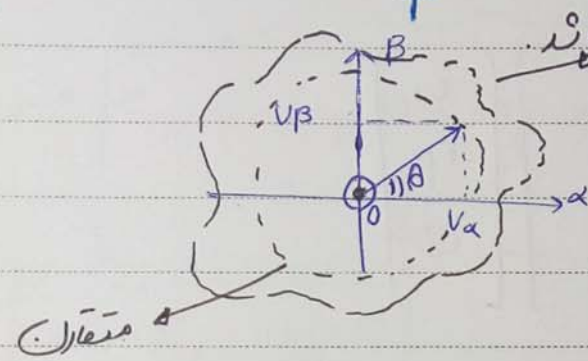 β
Vβ
θ
α
0
Vα
متقارن